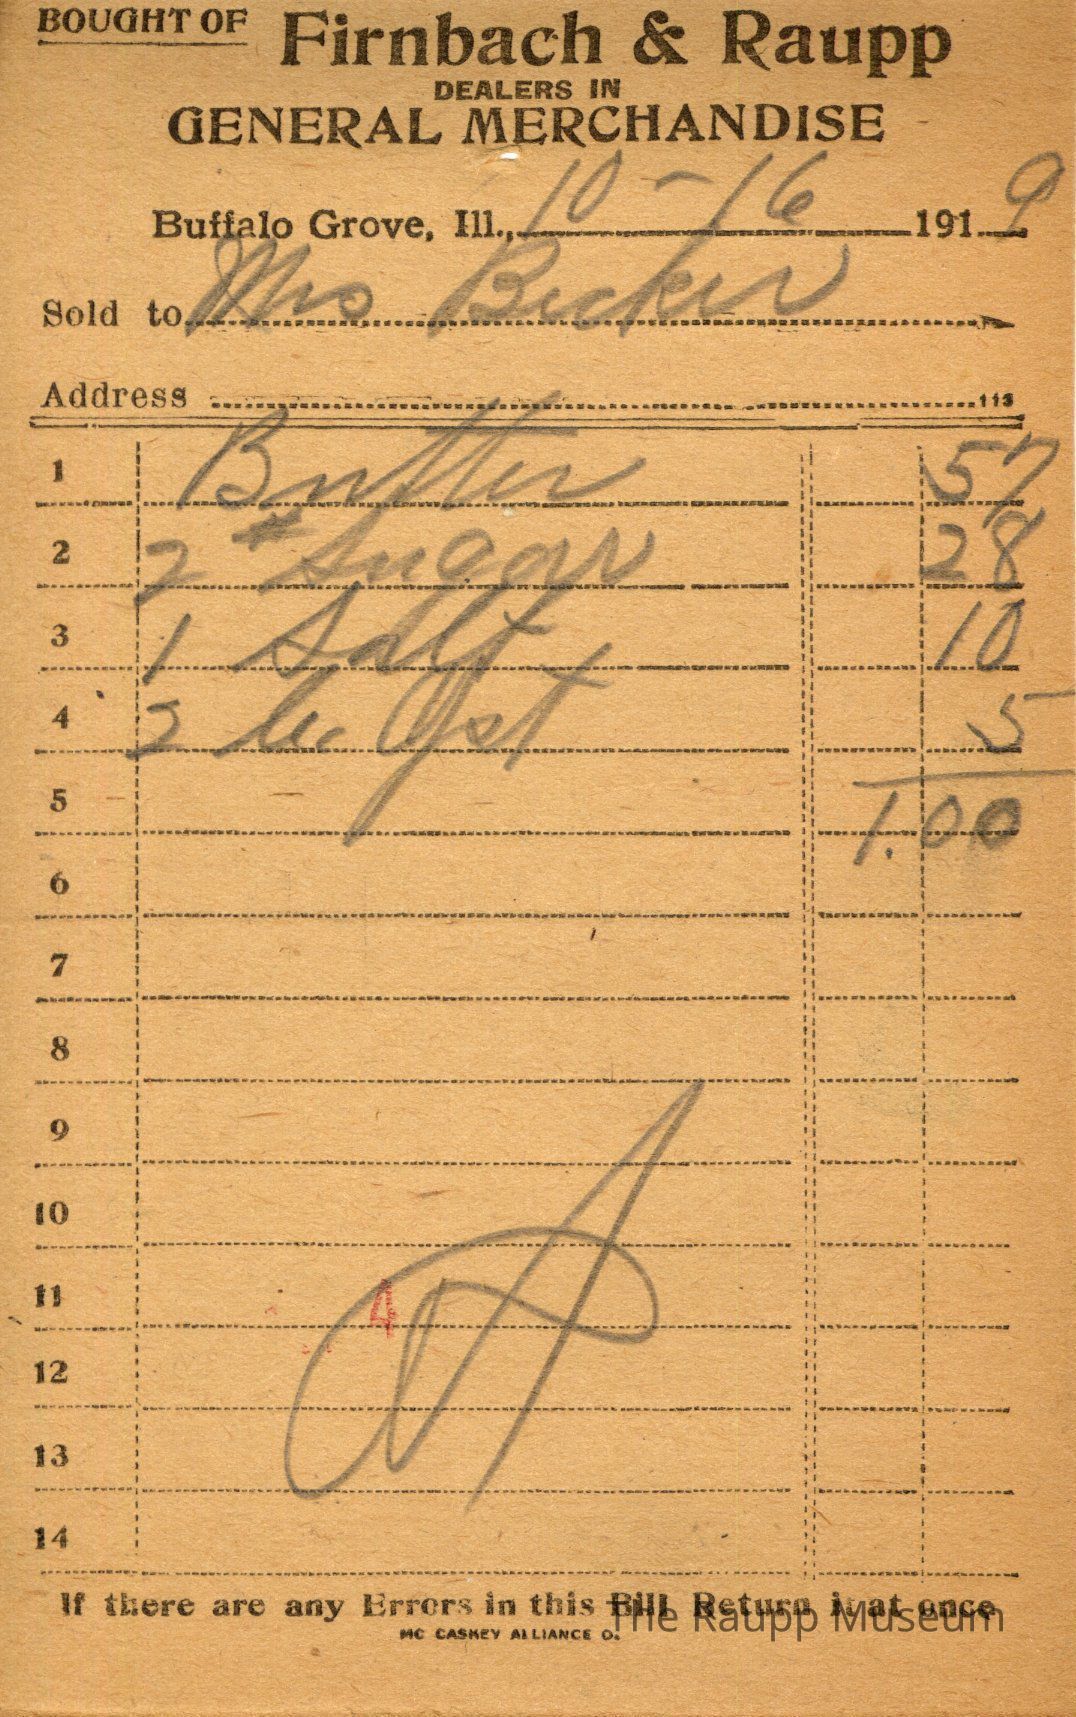 BOUGHT OF Firnbach & Raupp
DEALERS IN
GENERAL MERCHANDISE
Buffalo Grove, Ill., 10-16 1919
Sold to Mrs Becker
Address 113
1 Butter 57
2 2 # Sugar 28
3 1 Salt 10
4 2 5
5 1.00
6
7
8
9
10
11
4
12
13
14
If there are any Errors in this Bill Return it at once
The Raupp Museum
MC CASKEY ALLIANCE O.